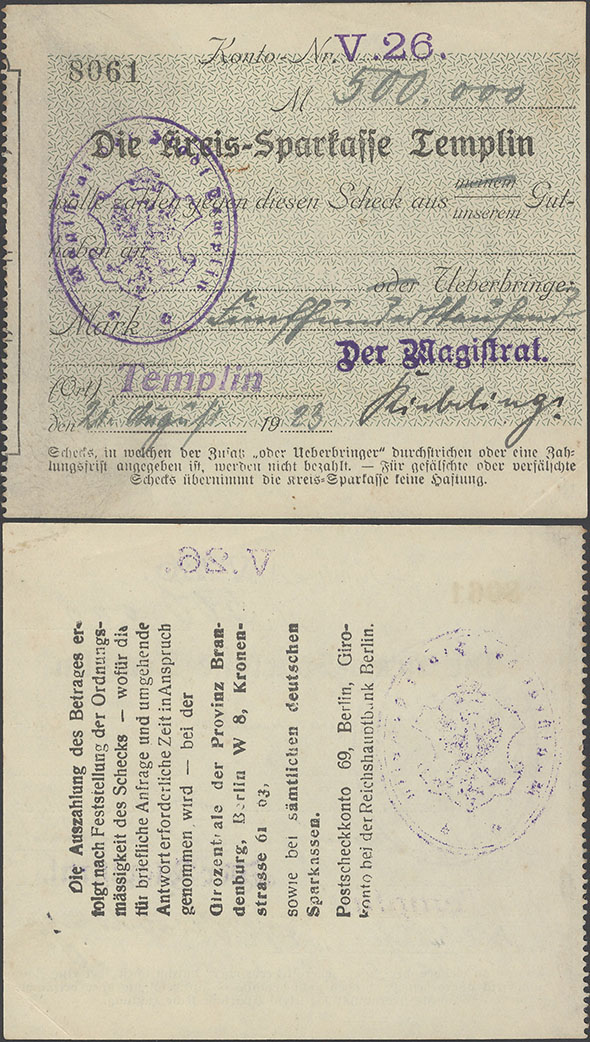 Konto-Nr. V.26.
8061
M 500.000
Die Kreis-Sparkasse Templin
wolle zahlen gegen diesen Scheck aus meinem
unserem Gut-
haben an
oder Ueberbringer
Mark Fünfhunderttausend
Der Magistrat.
(Ort) Templin
den 21. August 1923
Magistrat Templin
Schecks, in welchen der Zusatz „oder Ueberbringer" durchstrichen oder eine Zah-
lungsfrist angegeben ist, werden nicht bezahlt. — Für gefälschte oder verfälschte
Schecks übernimmt die Kreis-Sparkasse keine Haftung.
V.26.
8061
Die Auszahlung des Betrages er-
folgt nach Feststellung der Ordnungs-
mässigkeit des Schecks — wofür die
für briefliche Anfrage und umgehende
Antwort erforderliche Zeit in Anspruch
genommen wird — bei der
Girozentrale der Provinz Bran-
denburg, Berlin W 8, Kronen-
strasse 61 63,
sowie bei sämtlichen deutschen
Sparkassen.
Postscheckkonto 69, Berlin, Giro-
konto bei der Reichshauptbank Berlin.